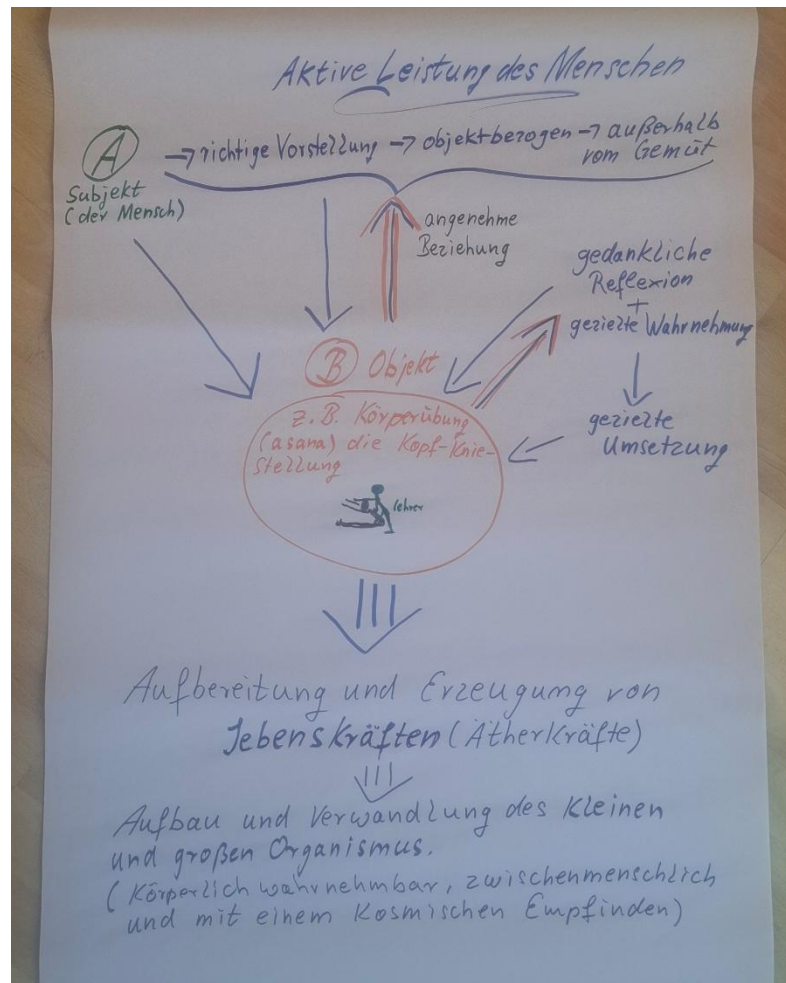 Aktive Leistung des Menschen
A → richtige Vorstellung → objektbezogen → außerhalb
vom Gemüt
Subjekt
(der Mensch)
angenehme
Beziehung
gedankliche
Reflexion
+
gezielte Wahrnehmung
gezielte
Umsetzung
B Objekt
z.B. Körperübung
(asana) die Kopf-Knie-
Stellung
Aufbereitung und Erzeugung von
Lebenskräften (Ätherkräfte)
Aufbau und Verwandlung des kleinen
und großen Organismus.
(Körperlich wahrnehmbar, zwischenmenschlich
und mit einem kosmischen Empfinden)